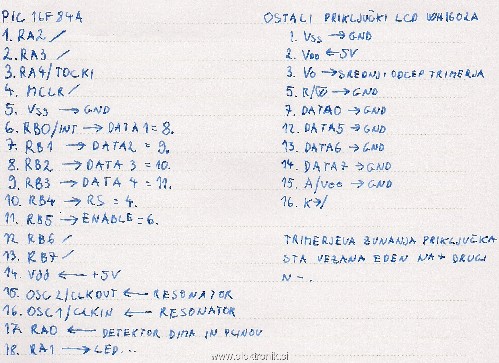 PIC 16F84A
1. RA2 /
2. RA3 /
3. RA4/TOCKI
4. MCLR /
5. VSS → GND
6. RB0/INT → DATA1 = 8.
7. RB1 → DATA2 = 9.
8. RB2 → DATA 3 = 10.
9. RB3 → DATA 4 = 11.
10. RB4 → RS = 4.
11. RB5 → ENABLE = 6.
12. RB6 /
13. RB7 /
14. VDD ← +5V
15. OSC2/CLKOUT ← RESONATOR
16. OSC1/CLKIN ← RESONATOR
17. RA0 ← DETEKTOR DIMA IN PLINOV
18. RA1 → LED...
OSTALI PRIKLJUČKI LCD WH1602A
1. VSS → GND
2. VDD ← 5V
3. VO → SREDNJI ODCEP TRIMERJA
5. R/W → GND
7. DATA0 → GND
12. DATA5 → GND
13. DATA6 → GND
14. DATA7 → GND
15. A/VEE → GND
16. K → /
TRIMERJEVA ZUNANJA PRIKLJUČKA
STA VEZANA EDEN NA + DRUGI
N -.
www.elektronik.si